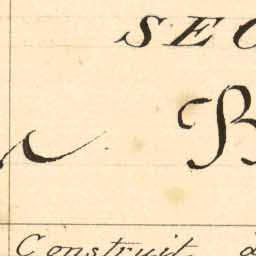 SEC
B
Construit